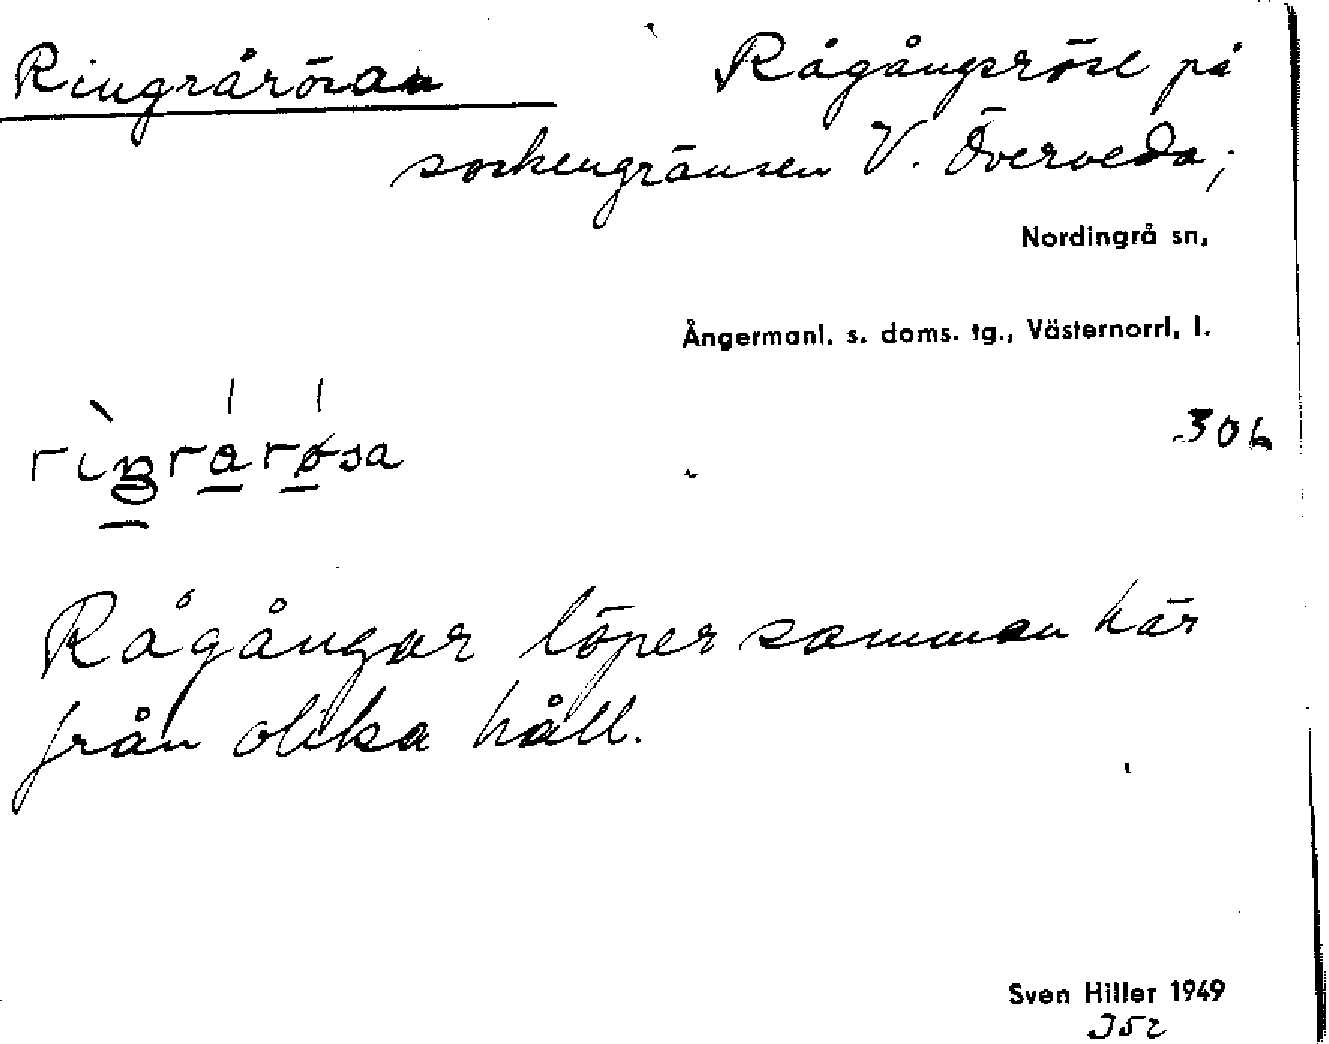 Ringrårösan Rågångsröse på
sockengränsen V. Överveda;
Nordingrå sn,
Ångermanl. s. doms. tg., Västernorrl. l.
306
Rågångar löper samman här
från olika håll.
Sven Hiller 1949